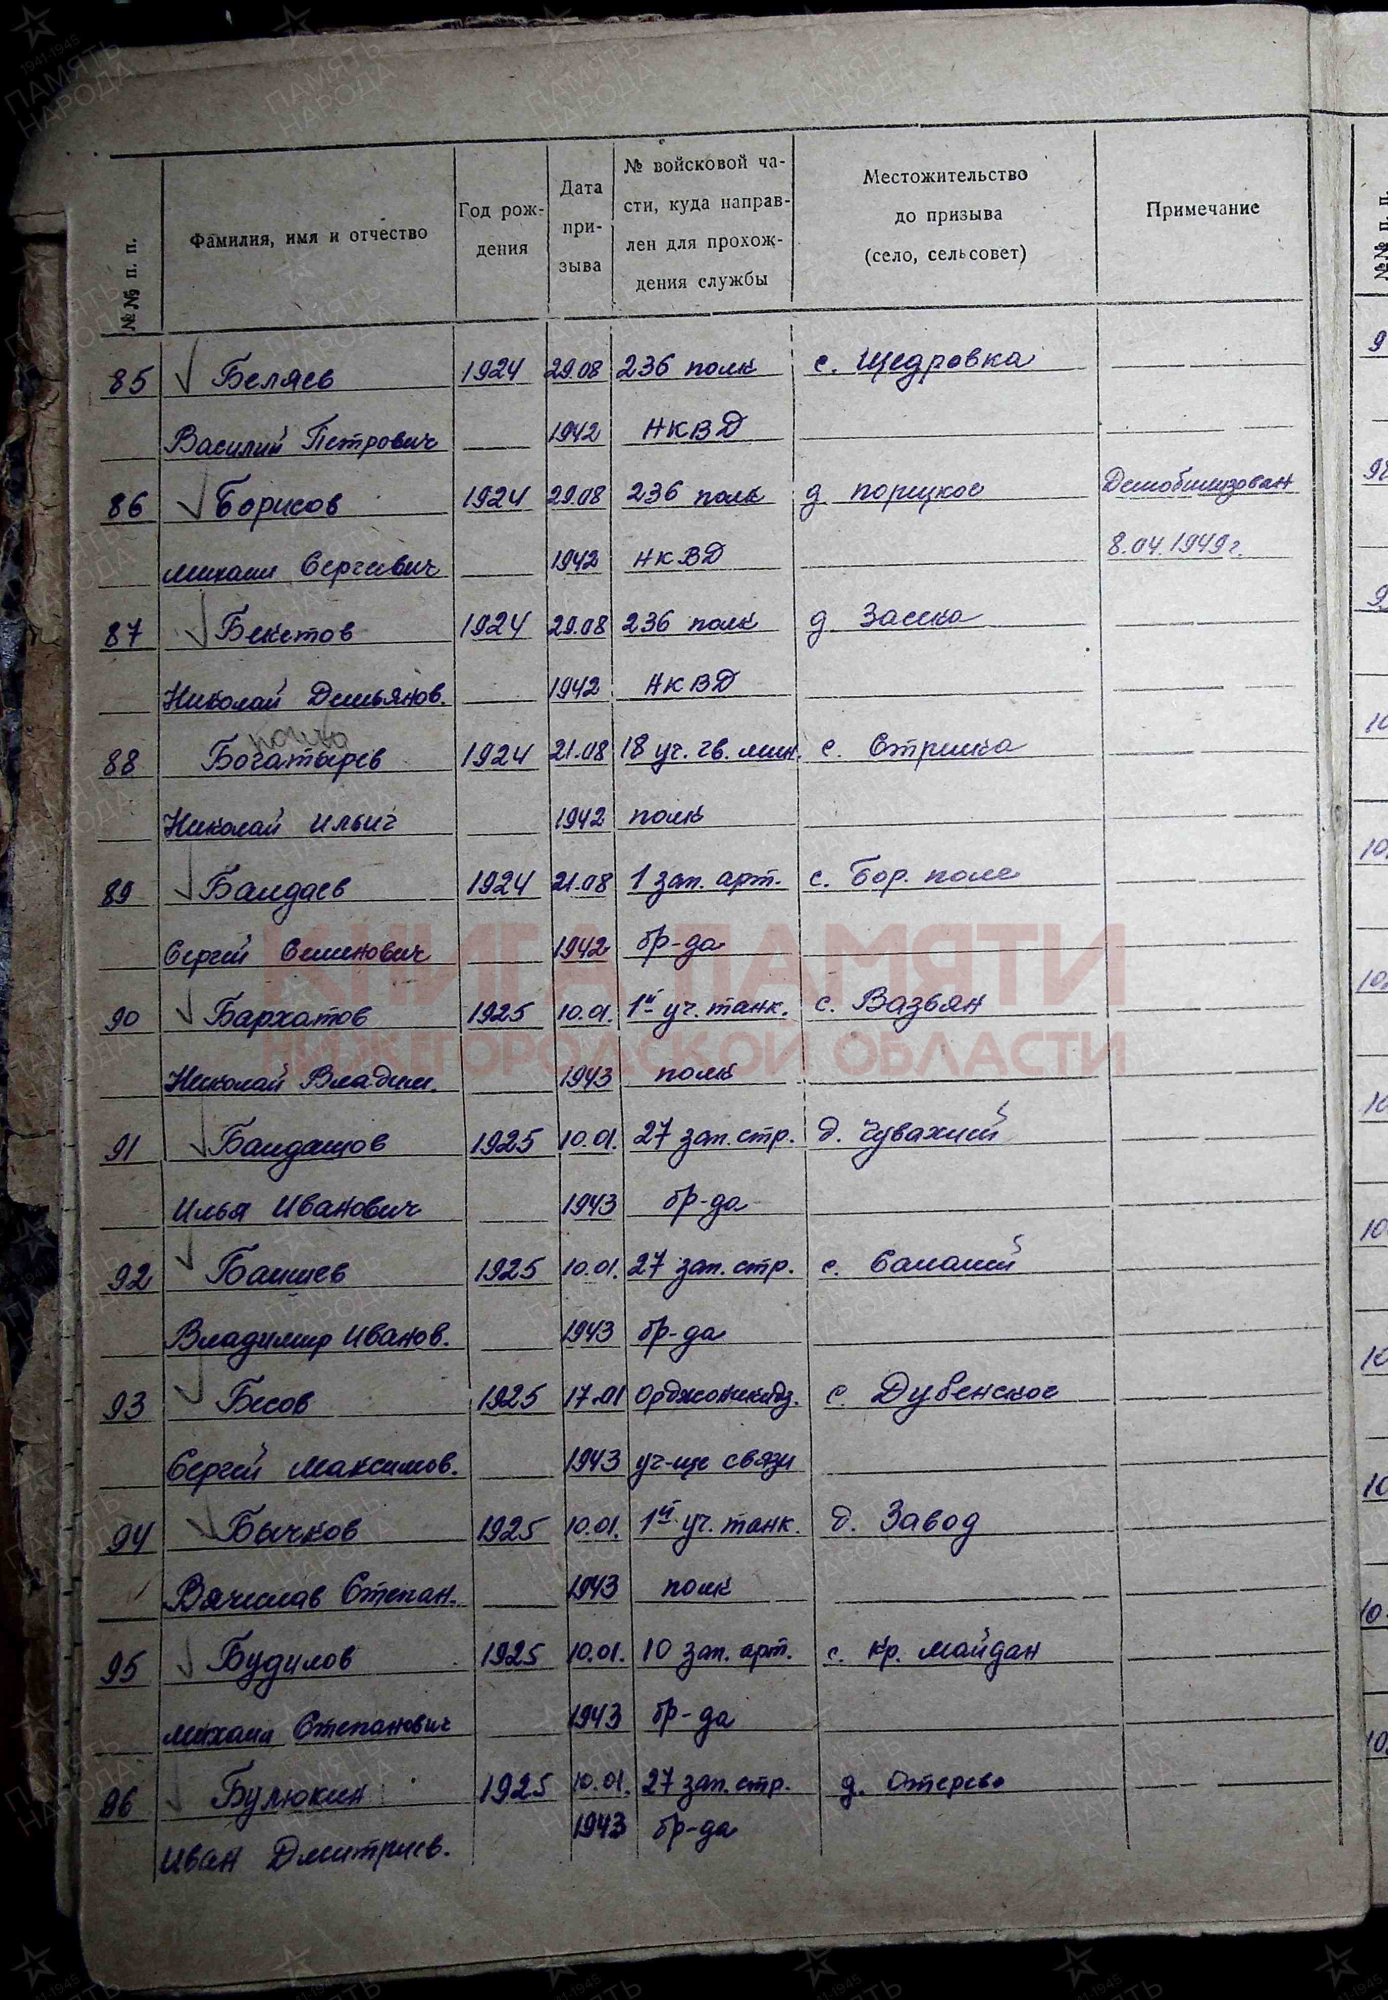 №№ п. п.
Фамилия, имя и отчество
Год рож-
дения
Дата
при-
зыва
№ войсковой ча-
сти, куда направ-
лен для прохож-
дения службы
Местожительство
до призыва
(село, сельсовет)
Примечание
85 Беляев 1924 29.08 236 полк с. Щедровка
Василий Петрович 1942 НКВД
86 Борисов 1924 29.08 236 полк д. Порецкое Демобилизован
Михаил Сергеевич 1942 НКВД 8.04.1949г.
87 Бекетов 1924 29.08 236 полк д. Засека
Николай Демьянов. 1942 НКВД
88 Богатырев 1924 21.08 18 уч. гв. мин. с. Стрелка
Николай Ильич 1942 полк
89 Баидаев 1924 21.08 1 зап. арт. с. Бор. поле
Сергей Семенович 1942 бр-да
90 Бархатов 1925 10.01. 1й уч. танк. с. Вазьян
Николай Владим. 1943 полк
91 Баидашов 1925 10.01. 27 зап. стр. д.
Илья Иванович 1943 бр-да
92 1925 10.01. 27 зап. стр. с.
Владимир Иванов. 1943 бр-да
93 Бесов 1925 17.01 Орджоникидз. с. Дубенское
Сергей Максимов. 1943 уч-ще связи
94 Бычков 1925 10.01. 1й уч. танк. д. Завод
Вячеслав Степан. 1943 полк
95 Будилов 1925 10.01. 10 зап. арт. с. Кр. Майдан
Михаил Степанович 1943 бр-да
96 Булюкин 1925 10.01. 27 зап. стр. д. Отерево
Иван Дмитриев. 1943 бр-да
КНИГА ПАМЯТИ
НИЖЕГОРОДСКОЙ ОБЛАСТИ
1941-1945
ПАМЯТЬ
НАРОДА